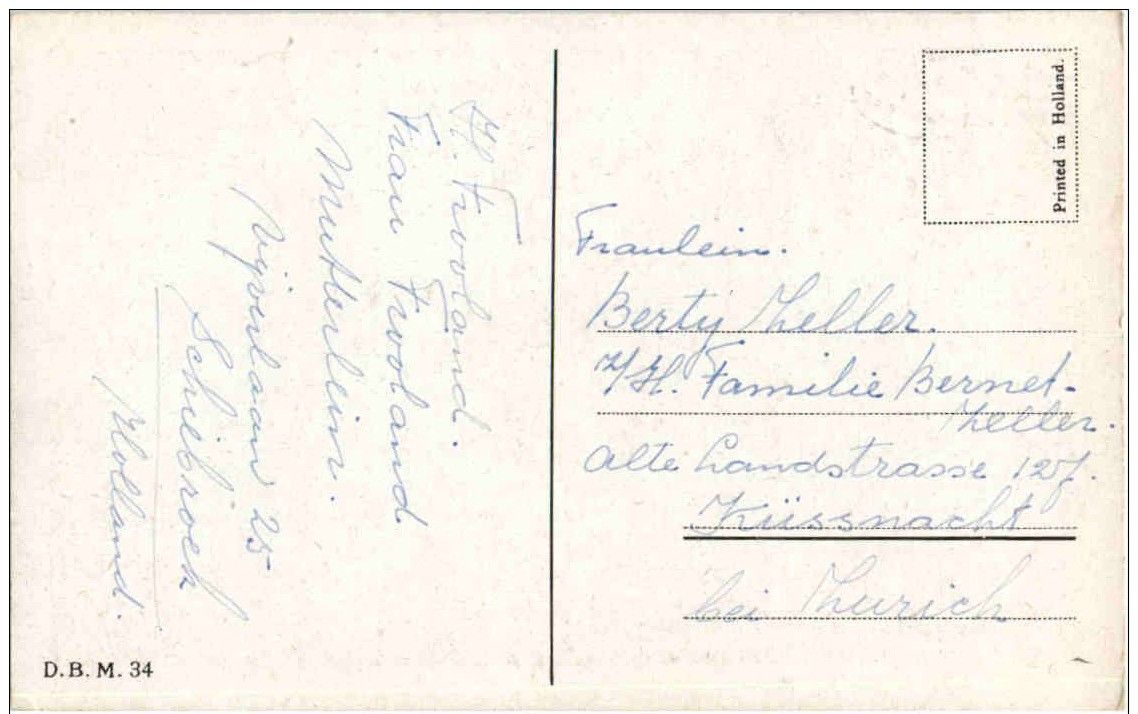 H. Trooland.
Frau Trooland
Mutterlein.
Vijverlaan 25
Schiebroek
Holland.
D.B.M. 34
Printed in Holland.
Fraulein.
Berty Zeller.
p/H. Familie Bernet-
Zeller.
Alte Landstrasse 127.
Küssnacht
bei Zurich